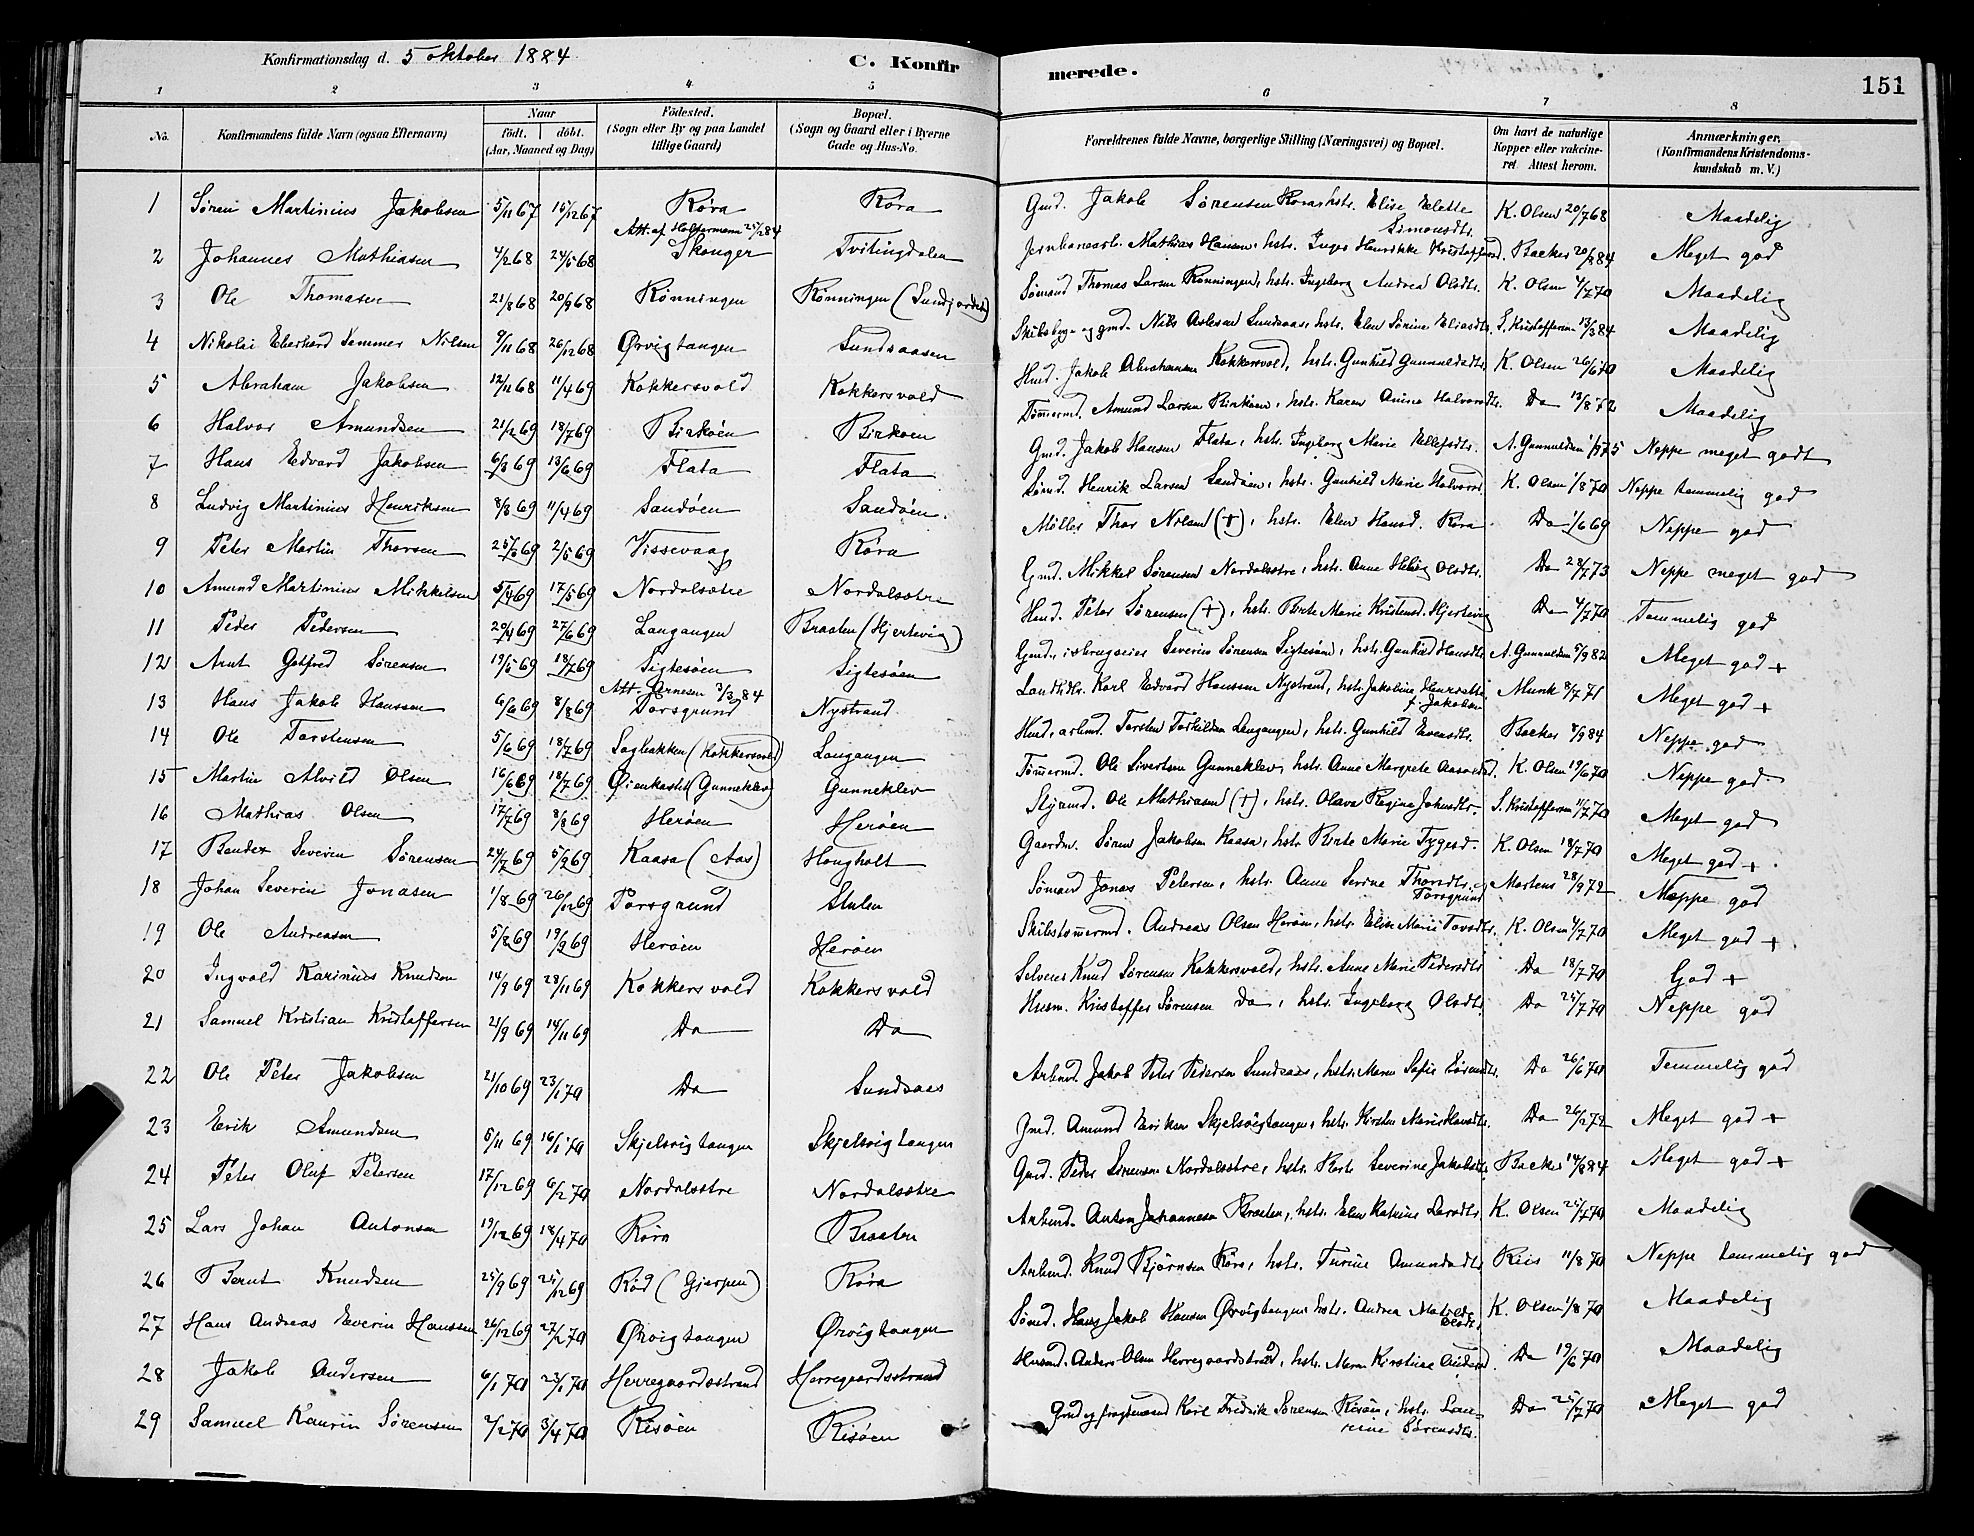 Konfirmationsdag d. 5 oktober 1884 C. Konfirmerede. 151
1 2 3 4 5 6 7 8
No. Konfirmandens fulde Navn (ogsaa Efternavn) Naar födt. döbt. (Aar, Maaned og Dag) Födested. (Sogn eller By og paa Landet tillige Gaard) Bopæl. (Sogn og Gaard eller i Byerne Gade og Hus-No. Forældrenes fulde Navne, borgerlige Stilling (Næringsvei) og Bopæl. Om havt de naturlige Kopper eller vakcineret Attest herom. Anmærkninger. (Konfirmandens Kristendomskundskab m. V.)
1 Sören Martinius Jakobsen 5/11 67 15/12 67 Röra Röra Gmd. Jakob Sörensen Röra, hstr. Elise Elette Simonsdtr. K. Olsen 20/7 68 Maadelig
2 Johannes Mathiasen 4/2 68 24/5 68 Att. af Holtermann 25/2 84 Skonger Tvitingdalen Jernbanearb. Mathias Hansen, hstr. Inger Henrikke Kristoffersd. Backer 20/8 84 Meget god
3 Ole Thomasen 21/8 68 20/9 68 Rönningen Rönningen (Sundjordet) Sömand Thomas Larsen Rönningen, hstr. Ingeborg Andrea Olsdtr. K. Olsen 4/7 70 Maadelig
4 Nikolai Eberhard Semmer Nilsen 9/11 68 26/12 68 Ørvigtangen Sundsaasen Skibsbygg. og gmd. Nils Aslesen Sundsaas, hstr. Elen Sörine Eliasdtr. S. Kristoffersen 13/3 84 Maadelig
5 Abraham Jakobsen 12/11 68 11/4 69 Kokkersvold Kokkersvold Hmd. Jakob Abrahamsen Kokkersvold, hstr. Gunhild Gunnuldsdtr. K. Olsen 26/6 70 Maadelig
6 Halvor Amundsen 21/2 69 18/7 69 Birköen Birköen Tömmermd. Amund Larsen Birköen, hstr. Karen Anine Halvorsdtr. Do 13/8 72 Maadelig
7 Hans Edvard Jakobsen 6/3 69 13/6 69 Flata Flata Gmd. Jakob Hansen Flata, hstr. Ingeborg Marie Ellefsdtr. A. Gunnuldsen 1/9 75 Neppe meget godt
8 Ludvig Martinius Henriksen 8/3 69 11/4 69 Sandöen Sandöen. Sömd. Henrik Larsen Sandöen, hstr. Gunhild Marie Halvorsd. K. Olsen 1/8 70 Neppe temmelig god
9 Peter Martin Thorsen 25/3 69 2/5 69 Vissevaag Röra Möller Thor Noland (+), hstr. Elen Hansd. Röra Do 1/6 69 Neppe god
10 Amund Martinius Mikkelsen 5/4 69 17/5 69 Nordalsetre Nordalsetre Gmd. Mikkel Sörensen Nordalsetre, hstr. Anne Helvig Olsdtr. Do 28/7 73 Neppe meget god
11 Peder Pedersen 20/4 69 27/6 69 Langangen Braaten (Hjertvig) Hmd. Peter Sörensen (+), hstr. Berte Marie Kristensd. Hjertvig Do 4/7 70 Temmelig god
12 Arnt Gotfred Sörensen 19/5 69 18/7 69 Sigtesöen Sigtesöen Gmd., isbrugseier Severin Sörensen Sigtesöen, hstr. Gunhild Hansdtr. A. Gunnuldsen 5/9 82 Meget god +
13 Hans Jakob Hanssen 6/6 69 8/8 69 Att. Arnesen 3/3 84 Porsgrund Nystrand Landhdlr. Karl Edvard Hanssen Nystrand, hstr. Jakobine Henriette f. Jakobsen Munk 8/7 71 Meget god +
14 Ole Torstensen 5/6 69 18/7 69 Sagbakken (Kokkersvold) Langangen Hmd, arbmd. Torsten Torkildsen Langangen, hstr. Gunhild Evensdtr. Backer 4/9 84 Neppe god
15 Martin Alvild Olsen 16/6 69 18/7 69 Øienkastet (Gunneklev) Gunneklev Tömmermd. Ole Sivertsen Gunneklev, hstr. Anne Margrete Aasoldsd. K. Olsen 19/6 70 Neppe god
16 Mathias Olsen 17/7 69 8/8 69 Heröen Heröen Styrmd. Ole Mathiasen (+), hstr. Olava Regine Johnsdtr. S. Kristoffersen 11/7 70 Meget god
17 Severin Sörensen 24/7 69 5/9 69 Kaasa (Aas) Hougholt Gaardm. Sören Jakobsen Kaasa, hstr. Berte Marie Tygesd. K. Olsen 18/7 70 Meget god +.
18 Johan Severin Jonasen 1/8 69 26/12 69 Porsgrund Stulen Sömand Jonas Petersen, hstr. Anne Serine Thorsdtr. Porsgrund Martens 28/9 72 Neppe god
19 Ole Andreasen 5/8 69 19/9 69 Heröen Heröen Skibstömmermd. Andreas Olsen Heröen, hstr. Elise Marie Tovsdtr. K. Olsen 4/7 70 Meget god +
20 Ingvald Karinius Knudsen 14/9 69 28/11 69 Kokkersvold Kokkersvold Selveier Knud Sörensen Kokkersvold, hstr. Anne Marie Pedersdtr Do 18/7 70 God +
21 Samuel Kristian Kristoffersen 21/9 69 14/11 69 Do Do Husm. Kristoffer Sörensen Do, hstr. Ingeborg Olsdtr. Do 25/7 70 Neppe god
22 Ole Peter Jakobsen 21/10 69 23/1 70 Do Sundsaas Arbmd. Jakob Peter Pedersen Sundsaas, hstr. Maren Sofie Sörensdtr. Do 26/6 70 Temmelig god
23 Erik Amundsen 5/11 69 16/1 70 Skjelsvigtangen Skjelsvigtangen Gmd. Amund Eriksen Skjelsvigtangen, hstr. Kirsten Marie Hansdtr. Do 26/2 72 Meget god +
24 Peter Oluf Petersen 17/12 69 6/2 70 Nordalsetre Nordalsetre Gmd. Peder Sörensen Nordalsetre, hstr. Berte Severine Jakobsdtr. Backer 14/8 84 Meget god +
25 Lars Johan Antonsen 19/12 69 18/4 70 Röra Braaten Arbmd. Anton Johannesen Braaten, hstr. Elen Katrine Larsdtr. K. Olsen 25/7 70 Maadelig
26 Bernt Knudsen 25/9 69 25/12 69 Röd (Gjerpen) Röra Arbmd. Knud Björnsen Röra, hstr. Turine Amundsdtr. Riis 11/8 70 Neppe temmelig god
27 Hans Andreas Severin Hanssen 26/12 69 27/2 70 Ørvigtangen Ørvigtangen Sömd. Hans Jakob Hansen Ørvigtangen hstr. Andrea Matilde Olsdtr. K. Olsen 1/8 70 Maadelig
28 Jakob Andersen 6/1 70 23/1 70 Herregaardsstrand Herregaardsstrand Husmd. Anders Olsen Herregaardsstrand, hstr. Maren Kirstine Andersd. Do 19/6 70 Maadelig
29 Samuel Laurin Sörensen 7/2 70 3/4 70 Risöen Risöen Gmd og fragtemand Karl Fredrik Sörensen Risöen, hstr. Laurine Sörensdtr. Do 25/7 70 Meget god